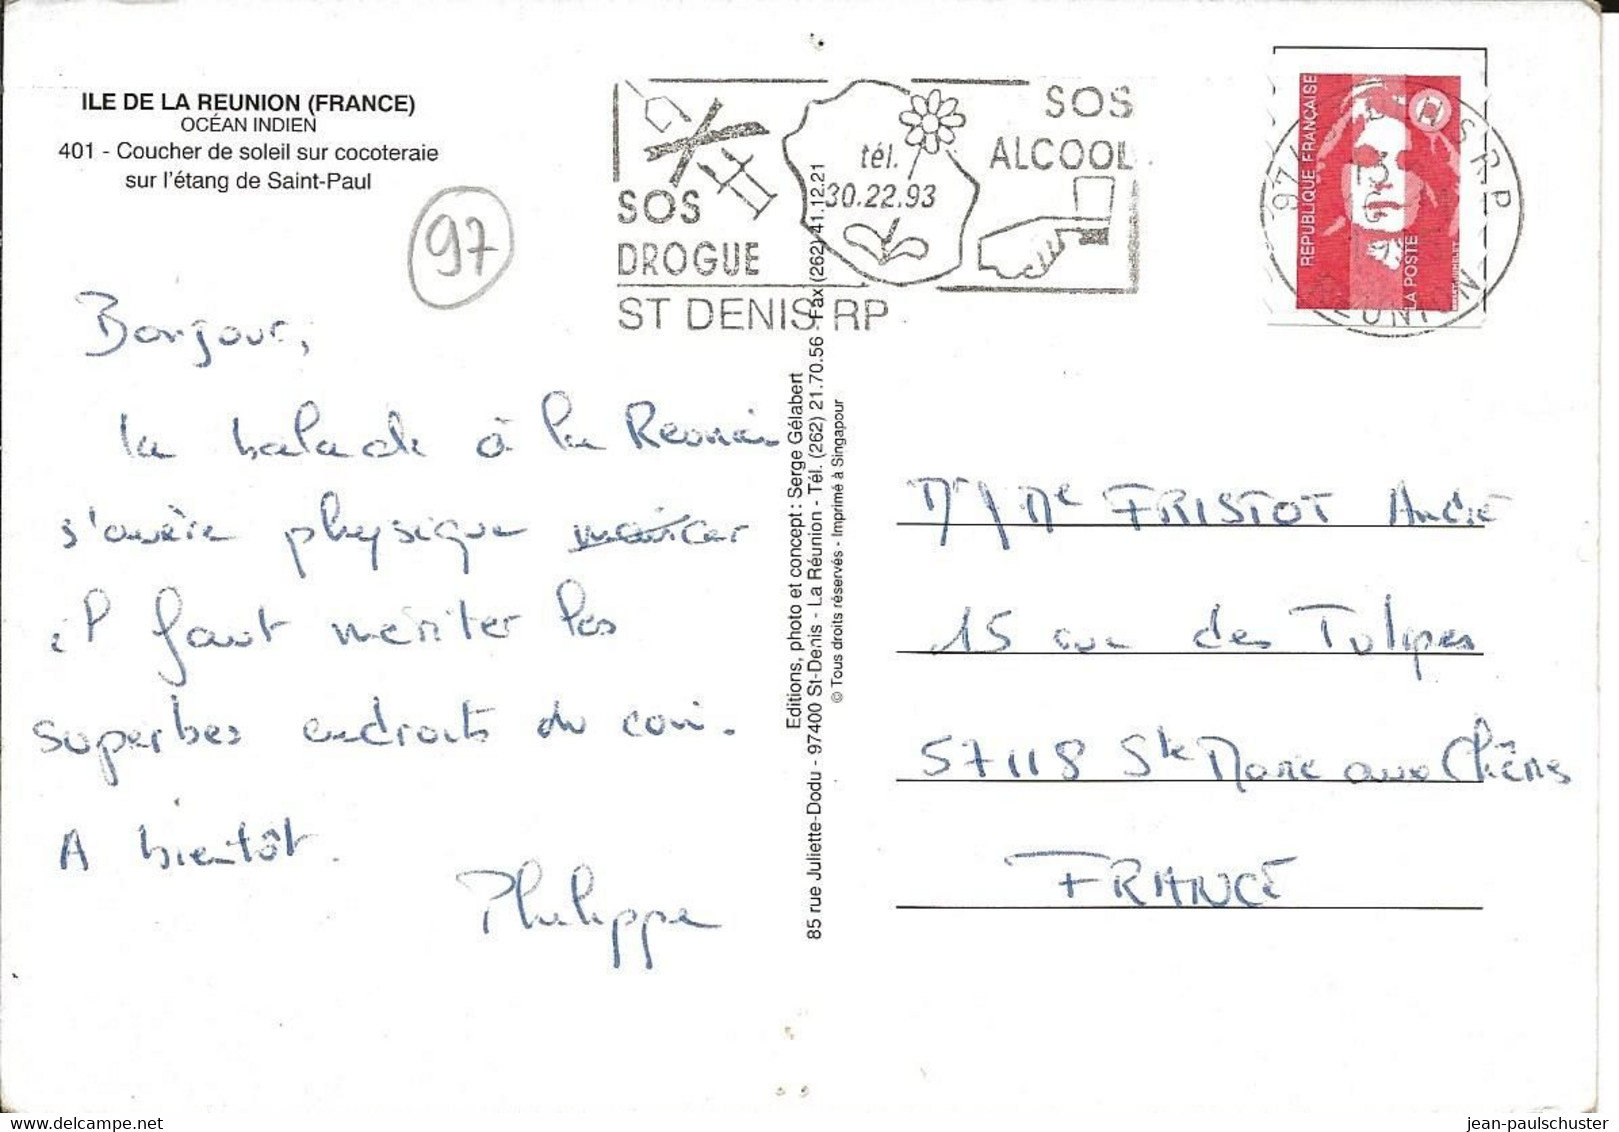 ILE DE LA REUNION (FRANCE)
OCÉAN INDIEN
401 - Coucher de soleil sur cocoteraie
sur l'étang de Saint-Paul
97
SOS
DROGUE
tél.
30.22.93
SOS
ALCOOL
ST DENIS RP
REPUBLIQUE FRANÇAISE
LA POSTE
Bonjour,
la balade à la Reunion
s'avère physique car
il faut meriter les
superbes endroits du coin.
A bientôt.
Philippe
Editions, photo et concept : Serge Gélabert
85 rue Juliette-Dodu - 97400 St-Denis - La Réunion - Tél. (262) 21.70.56 - Fax (262) 41.12.21
© Tous droits réservés - Imprimé à Singapour
Mr / Me FRISTOT André
15 rue des Tulipes
57118 Ste Marie aux Chênes
FRANCE
jean-paulschuster